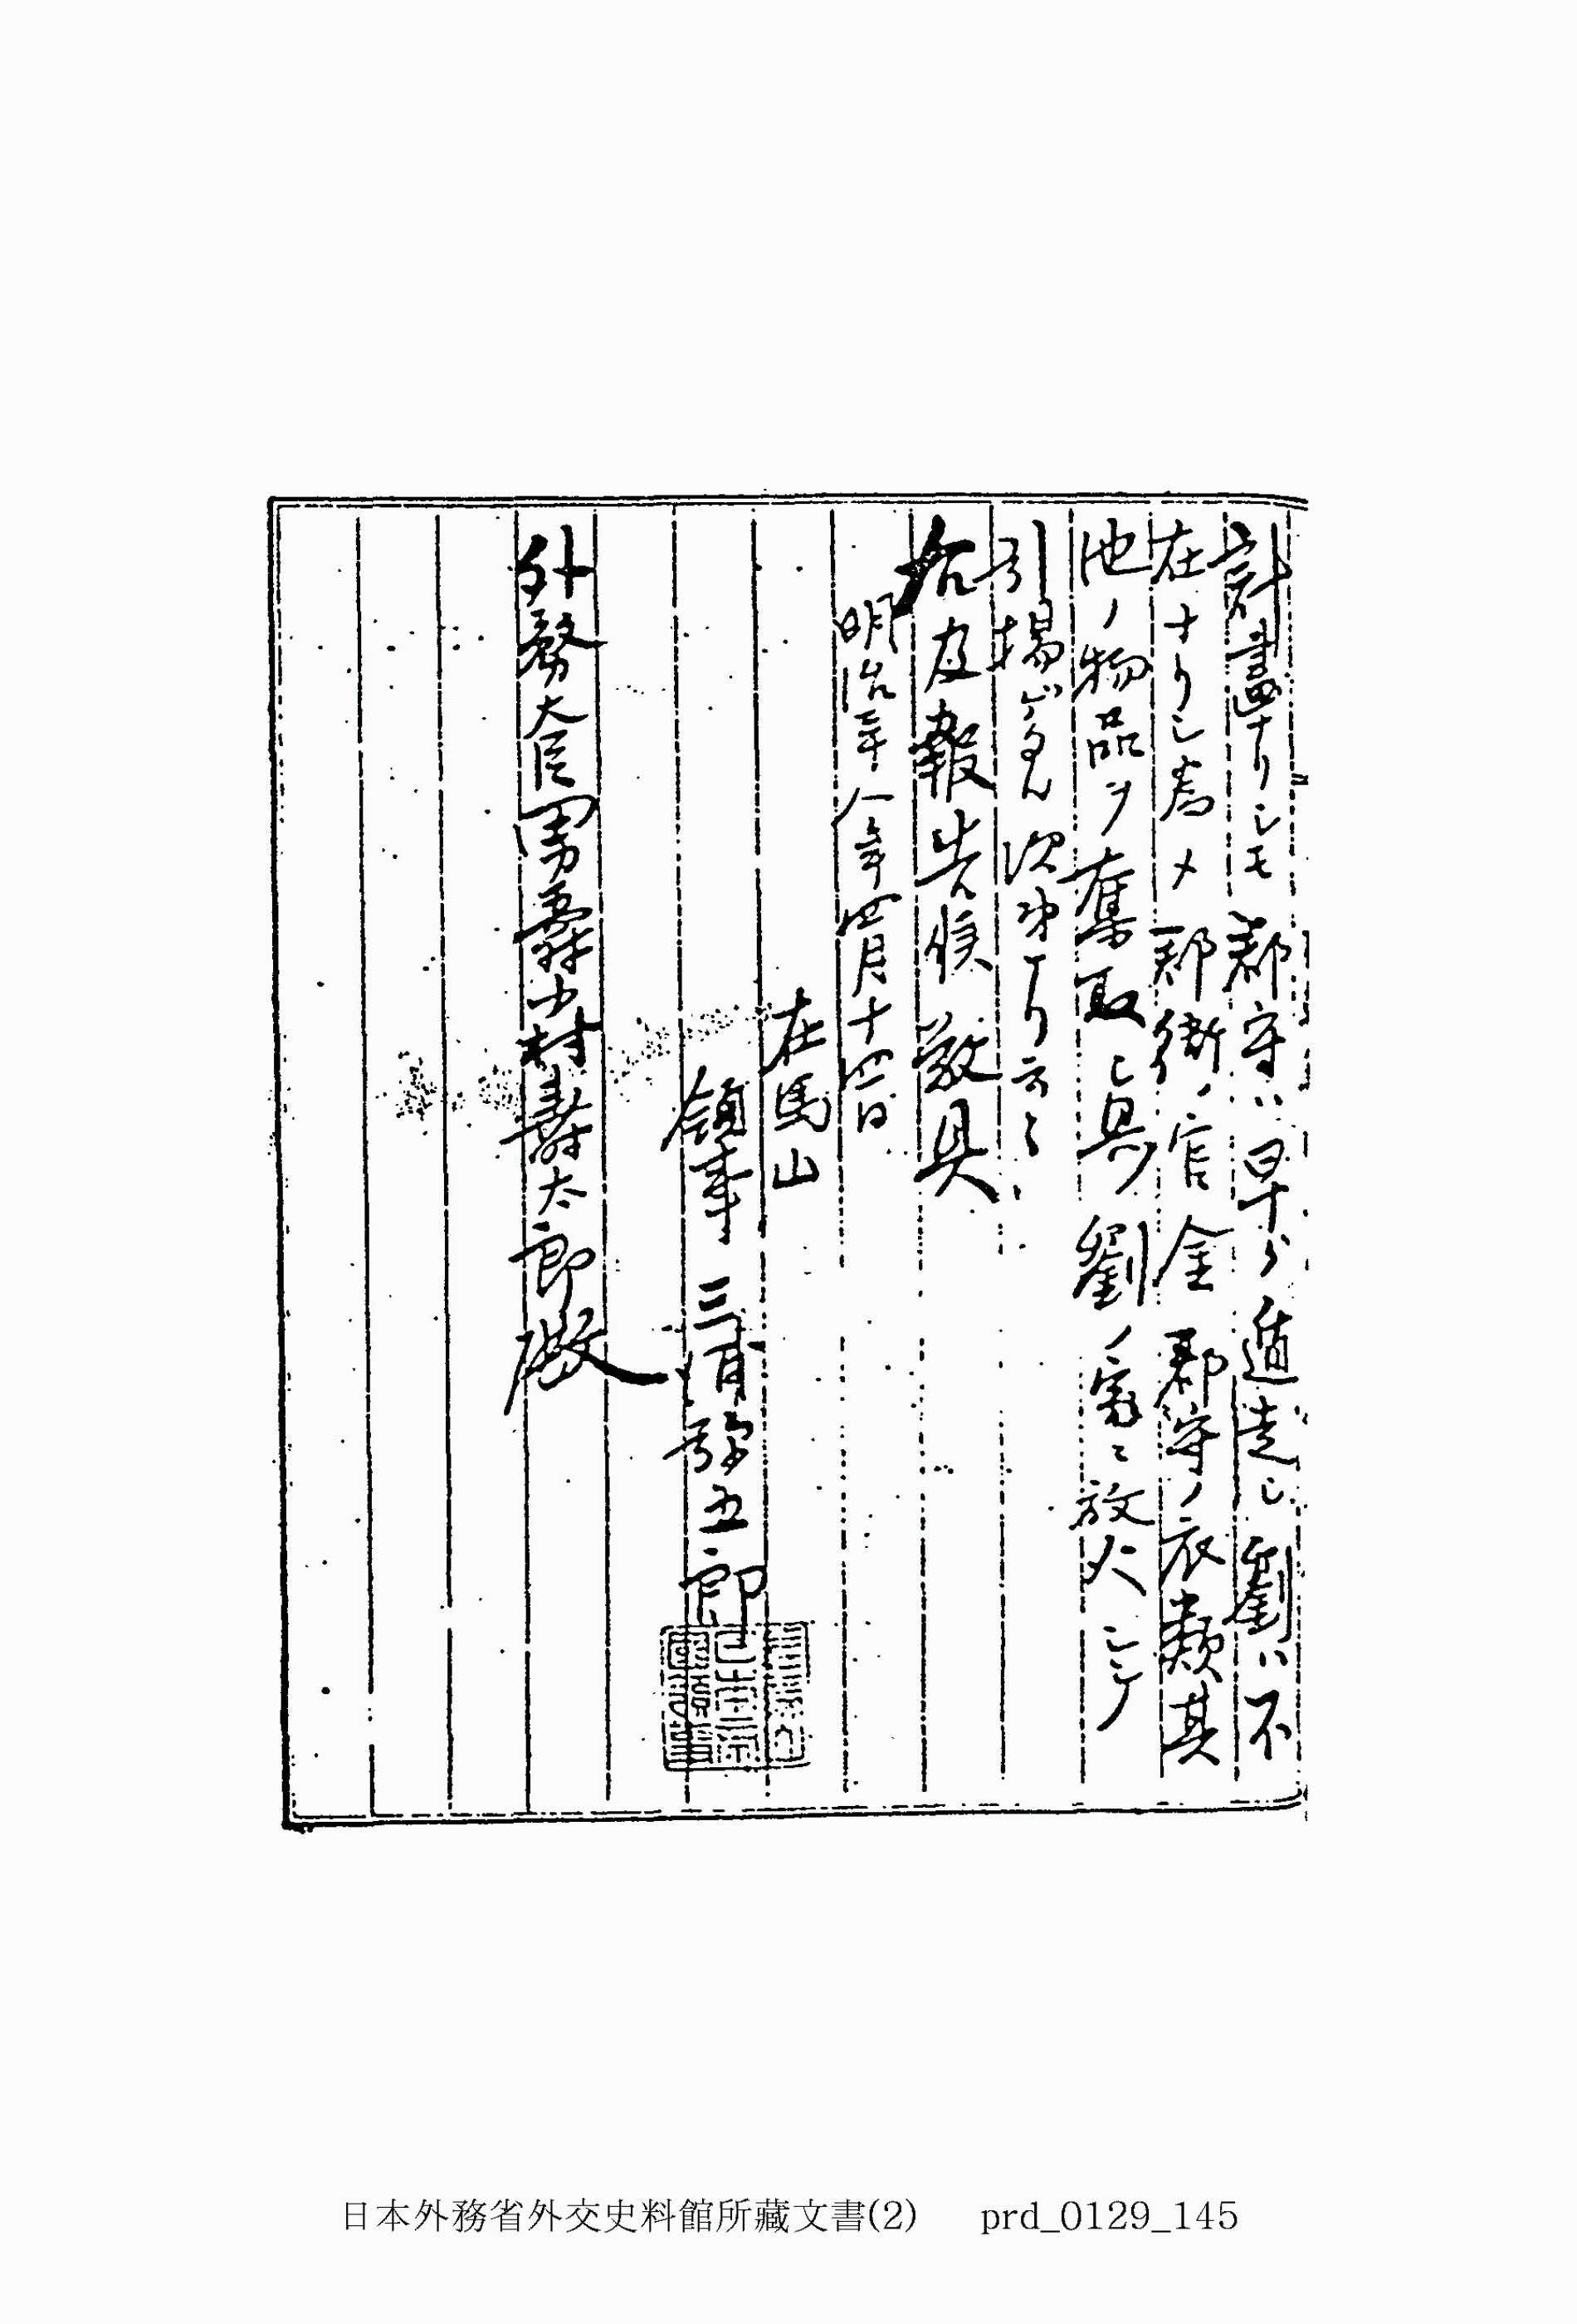 計畫ナリシモ郡守ハ早ク遁走シ劉ハ不
在ナリシ為メ郡衙ノ官金郡守ノ衣類其
他ノ物品ヲ奪取シ且ツ劉ノ家ニ放火シテ
引揚ゲタル次第ナリ云々
右及報告候敬具
明治三十八年四月十四日
在馬山
領事三浦弥五郎
外務大臣男爵小村壽太郎殿
日本外務省外交史料館所藏文書(2) prd_0129_145